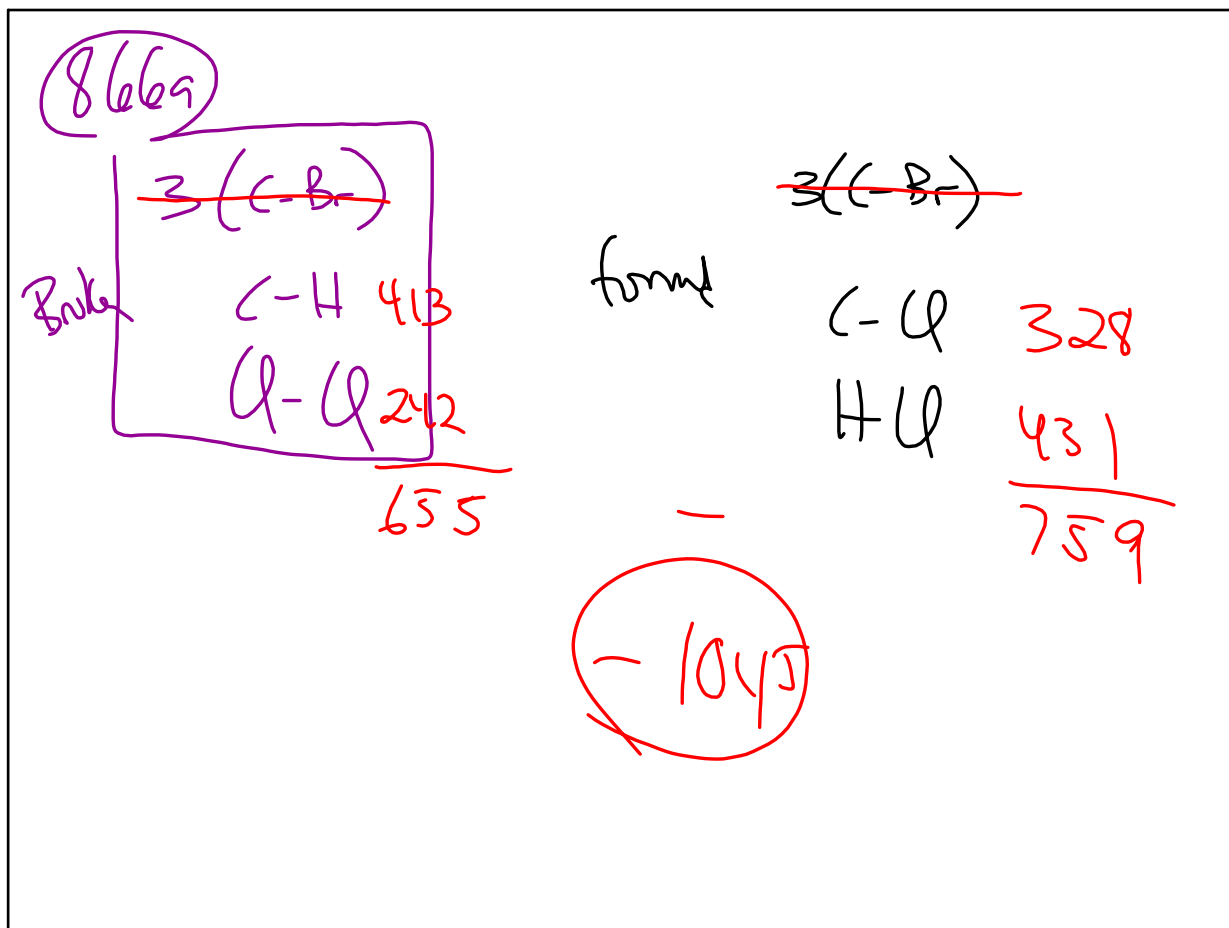 866a
3(C-Br)
Broken
C-H 413
Cl-Cl 242
655
3(C-Br)
formed
C-Cl 328
H-Cl 431
759
-
-104J